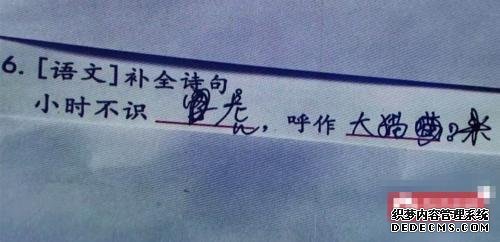 6. [语文] 补全诗句
小时不识 ，呼作 大猫 。米
织梦内容管理系统
DEDECMS.COM